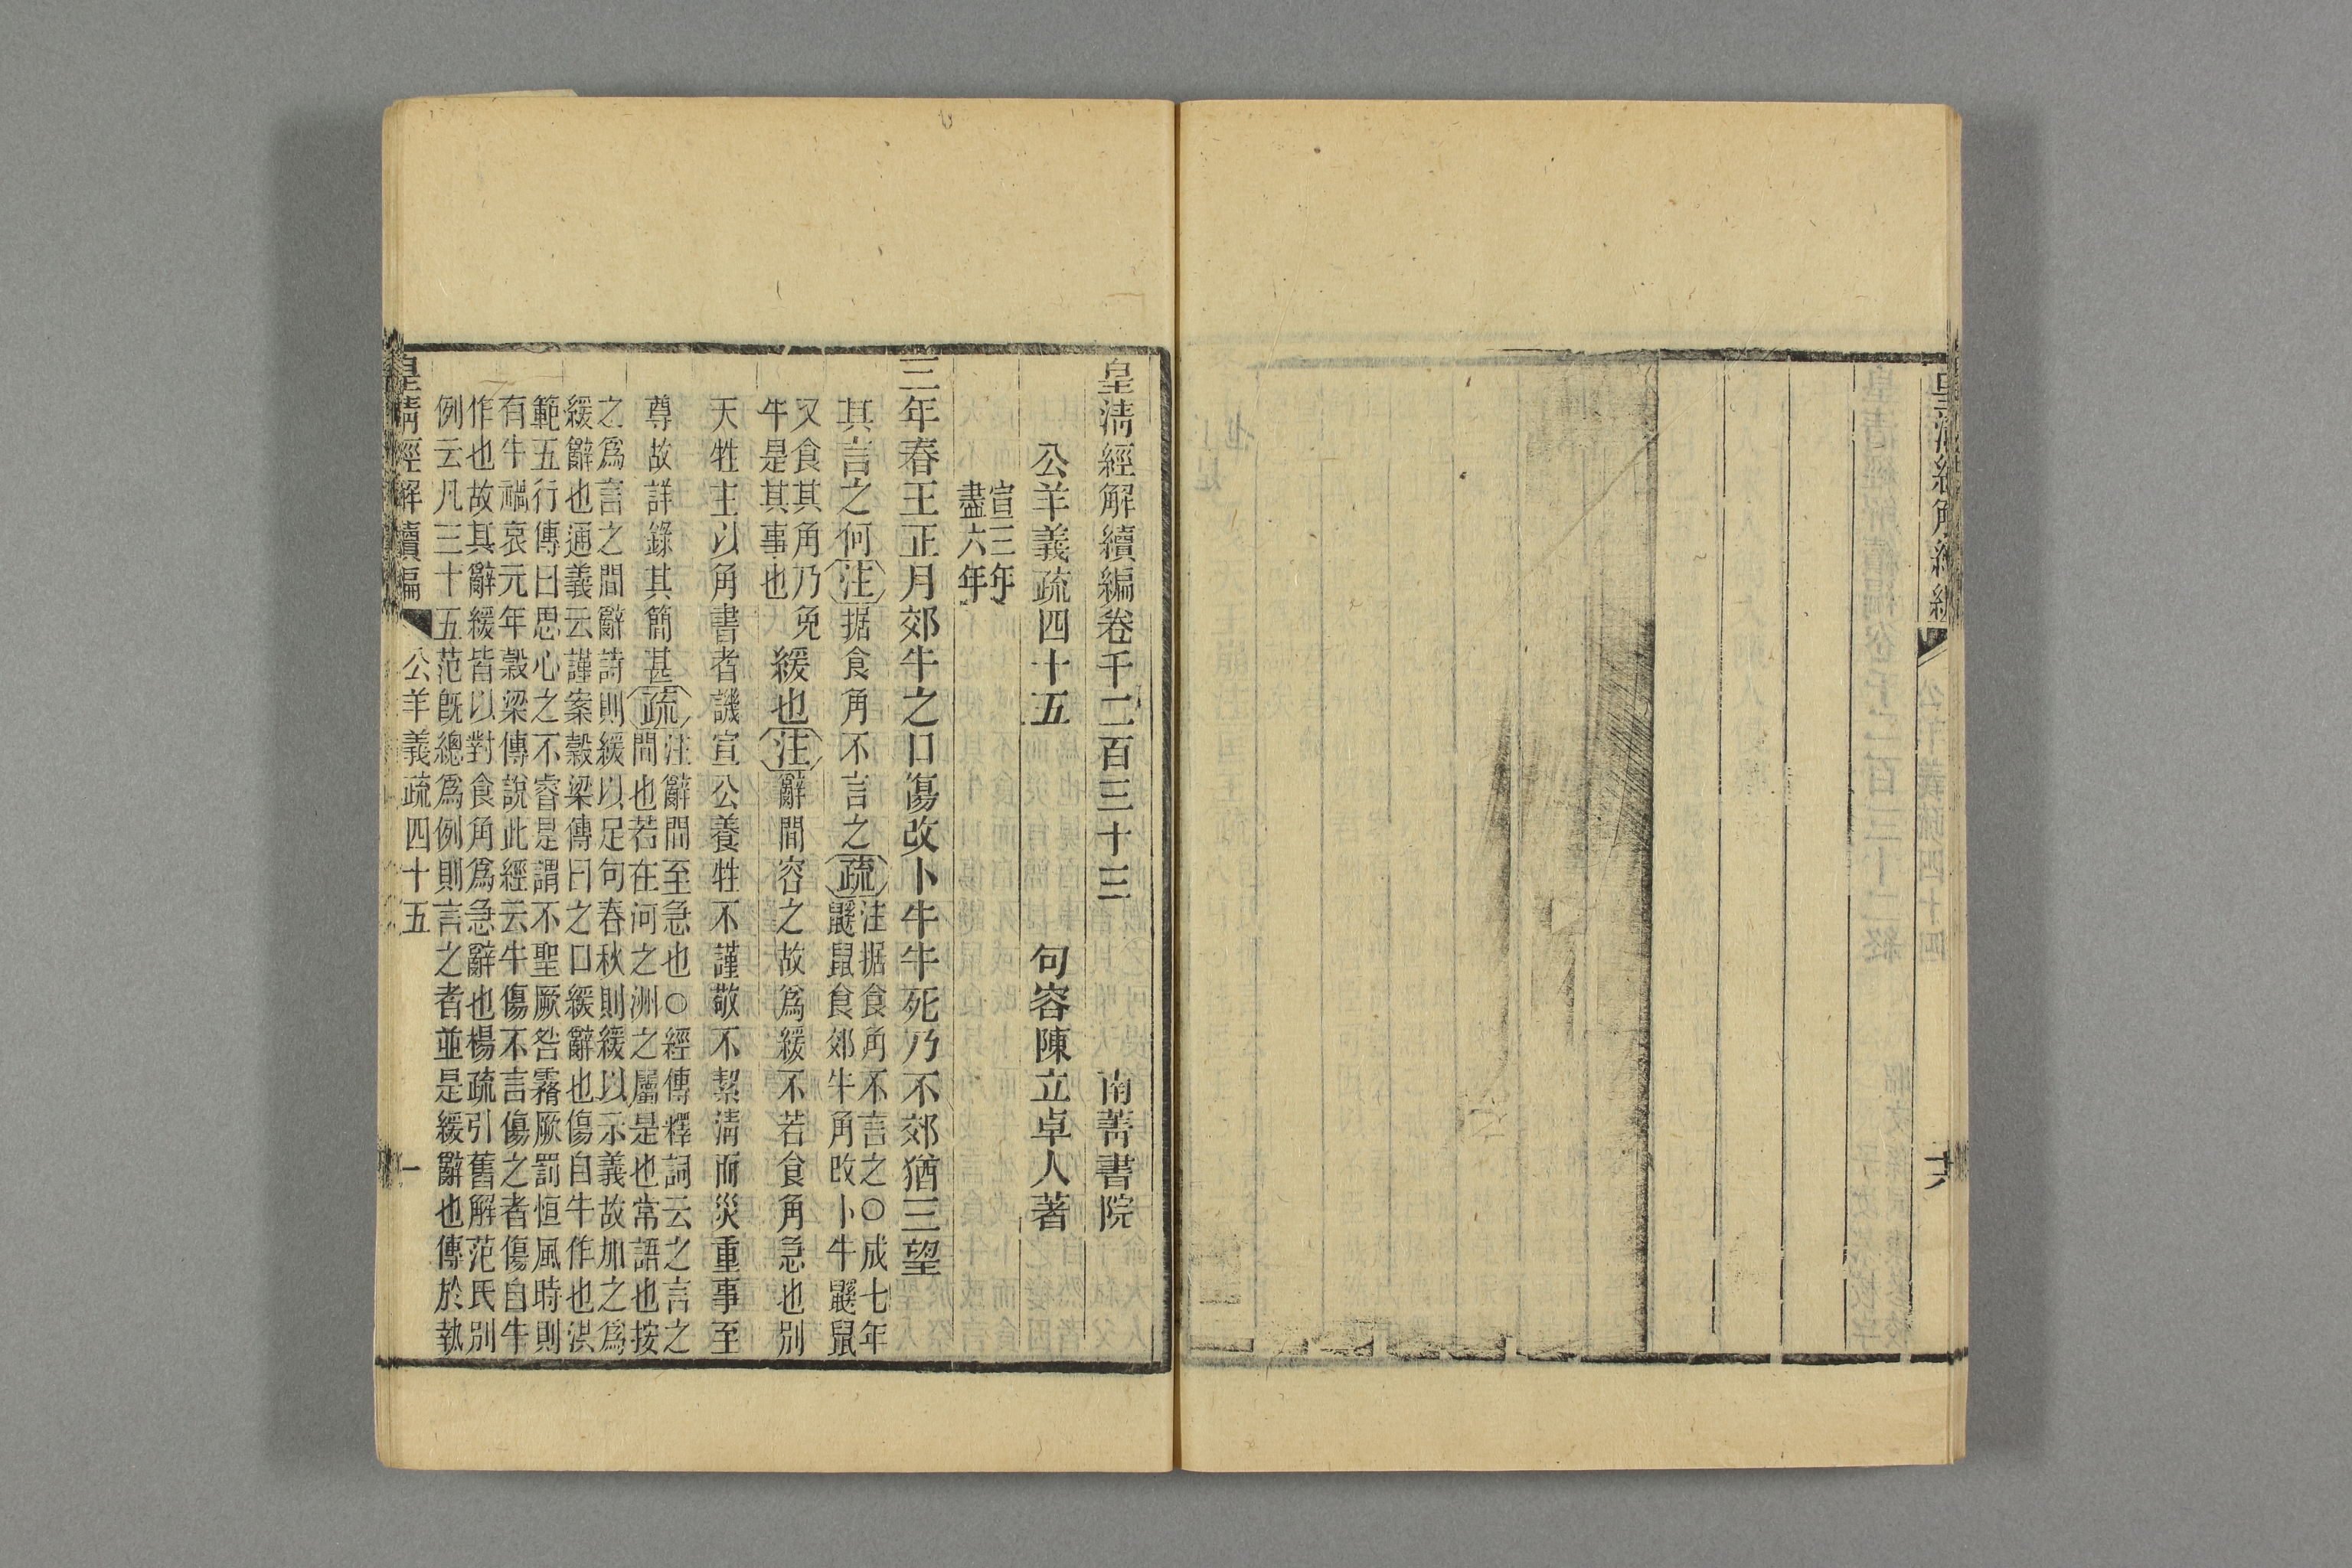 皇清經解續編卷千二百三十三 南菁書院
公羊義疏四十五 句容陳立卓人著
宣三年
盡六年
三年春王正月郊牛之口傷改卜牛牛死乃不郊猶三望
其言之何注据食角不言之疏
注据食角不言之○成七年
鼷鼠食郊牛角改卜牛鼷鼠
又食其角乃免
牛是其事也
緩也注辭間容之故爲緩不若食角急也別
天牲主以角書者譏宣公養牲不謹敬不絜清而災重事至
尊故詳錄其簡甚疏
注辭間至急也○經傳釋詞云之言之
間也若在河之洲之屬是也常語也按
之爲言之間辭詩則緩以足句春秋則緩以示義故加之爲
緩辭也通義云謹案穀梁傳曰之口緩辭也傷自牛作也洪
範五行傳曰思心之不睿是謂不聖厥咎霿厥罰恒風時則
有牛禍哀元年穀梁傳說此經云牛傷不言傷之者傷自牛
作也故其辭緩皆以對食角爲急辭也楊疏引舊解范氏別
例云凡三十五范旣總爲例則言之者並是緩辭也傳於執
皇清經解續編 公羊義疏四十五 一